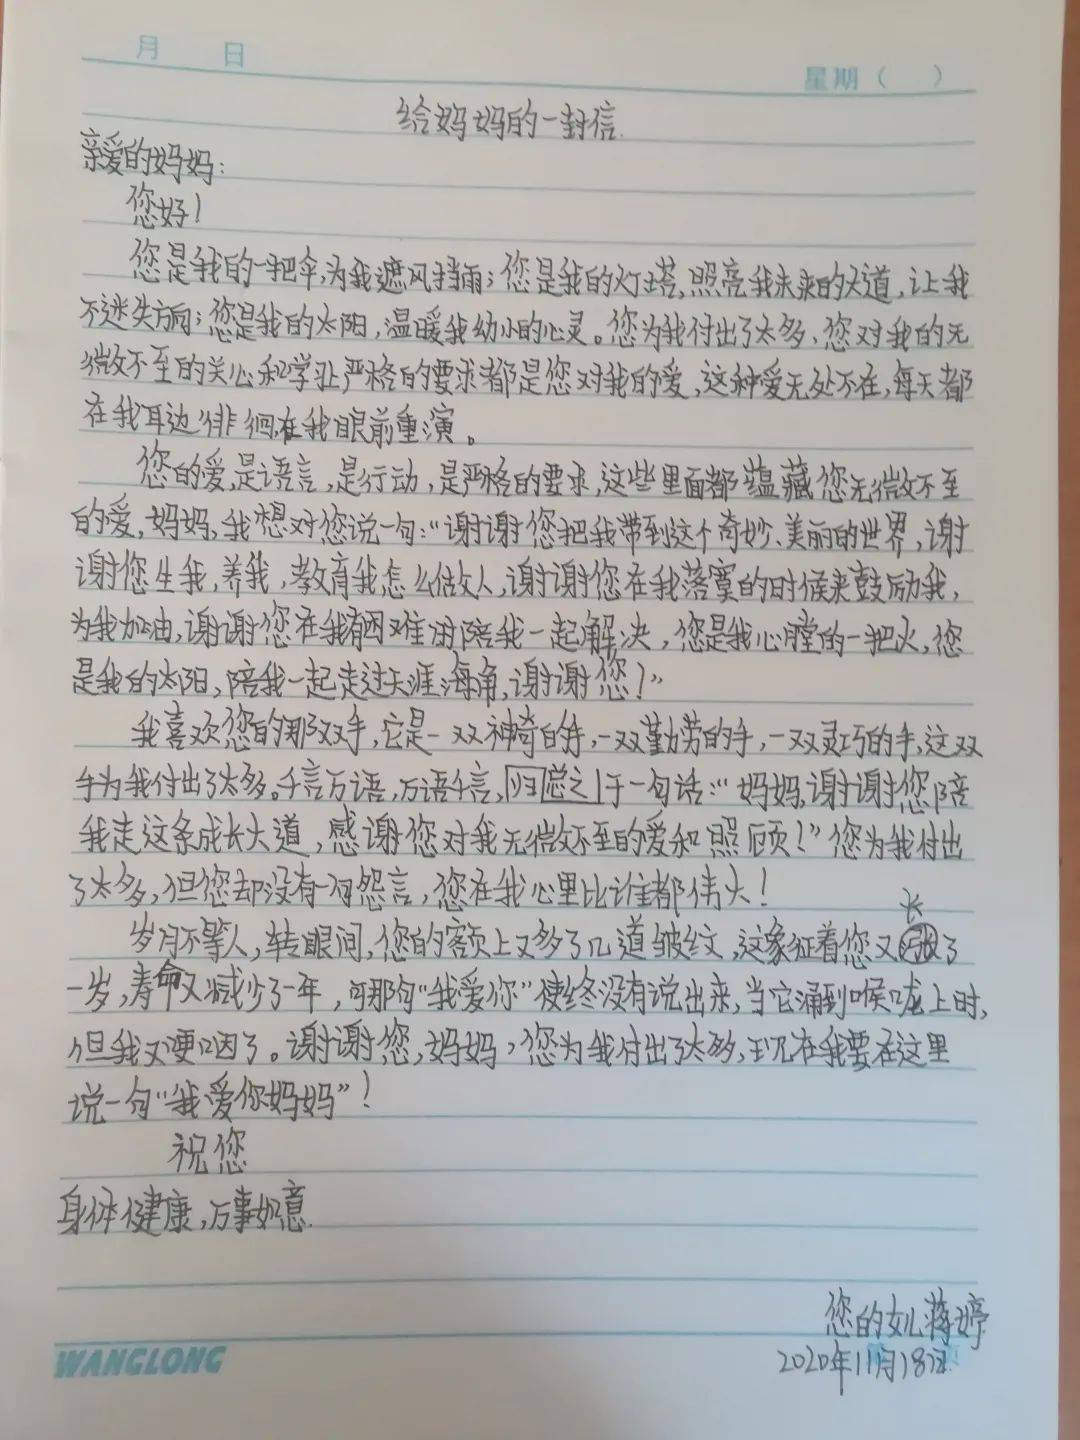 月 日
星期（ ）
给妈妈的一封信.
亲爱的妈妈:
您好!
您是我的一把伞,为我遮风挡雨;您是我的灯塔,照亮我未来的大道,让我
不迷失方向;您是我的太阳,温暖我幼小的心灵。您为我付出了太多、您对我的无
微不至的关心和学业严格的要求都是您对我的爱,这种爱无处不在,每天都
在我耳边徘徊,在我眼前重演。
您的爱,是语言,是行动,是严格的要求,这些里面都蕴藏您无微不至
的爱,妈妈,我想对您说一句:“谢谢您把我带到这个奇妙、美丽的世界,谢
谢您生我,养我,教育我怎么做人,谢谢您在我落寞的时候来鼓励我,
为我加油,谢谢您在我有困难时陪我一起解决,您是我心膛的一把火,您
是我的太阳,陪我一起走过天涯海角,谢谢您!”
我喜欢您的那双手,它是一双神奇的手,一双勤劳的手,一双灵巧的手,这双
手为我付出了太多。千言万语,万语千言,归总之于一句话:“妈妈,谢谢您陪
我走这条成长大道,感谢您对我无微不至的爱和照顾!”您为我付出
了太多,但您却没有一句怨言,您在我心里比谁都伟大!
岁月不等人,转眼间,您的额页上又多了几道皱纹,这象征着您又长了
一岁,寿命又减少了一年,可那句“我爱你”使终没有说出来,当它涌到喉咙上时,
但我又哽咽了。谢谢您,妈妈,您为我付出了太多,现在我要在这里
说一句“我爱你妈妈”!
祝您
身体健康,万事如意.
您的女儿蒋婷
2020年11月18日
WANGLONG